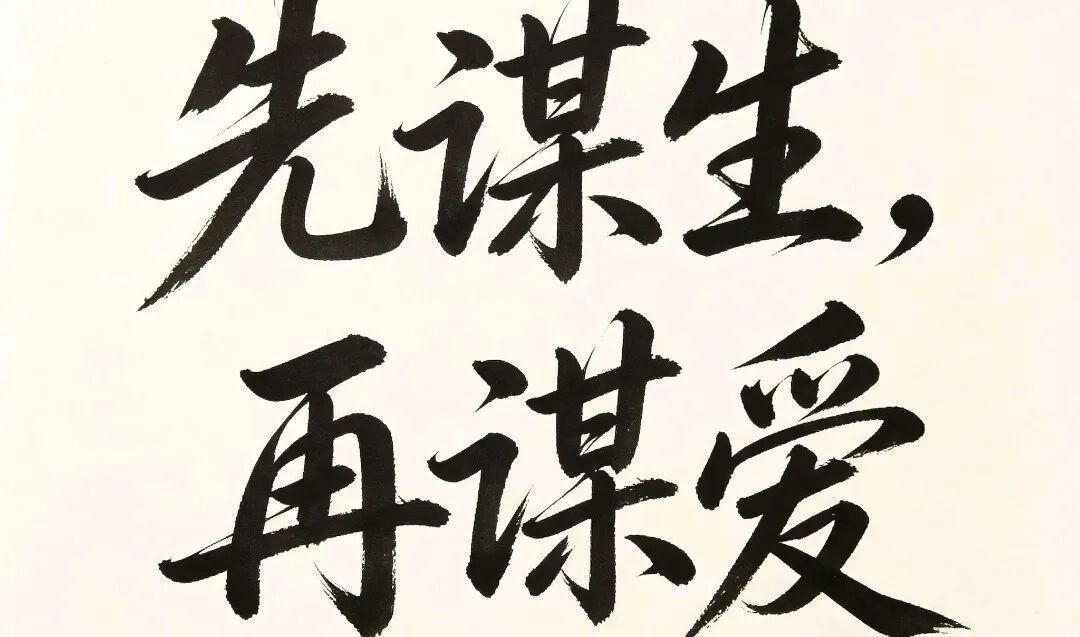 先谋生,
再谋爱